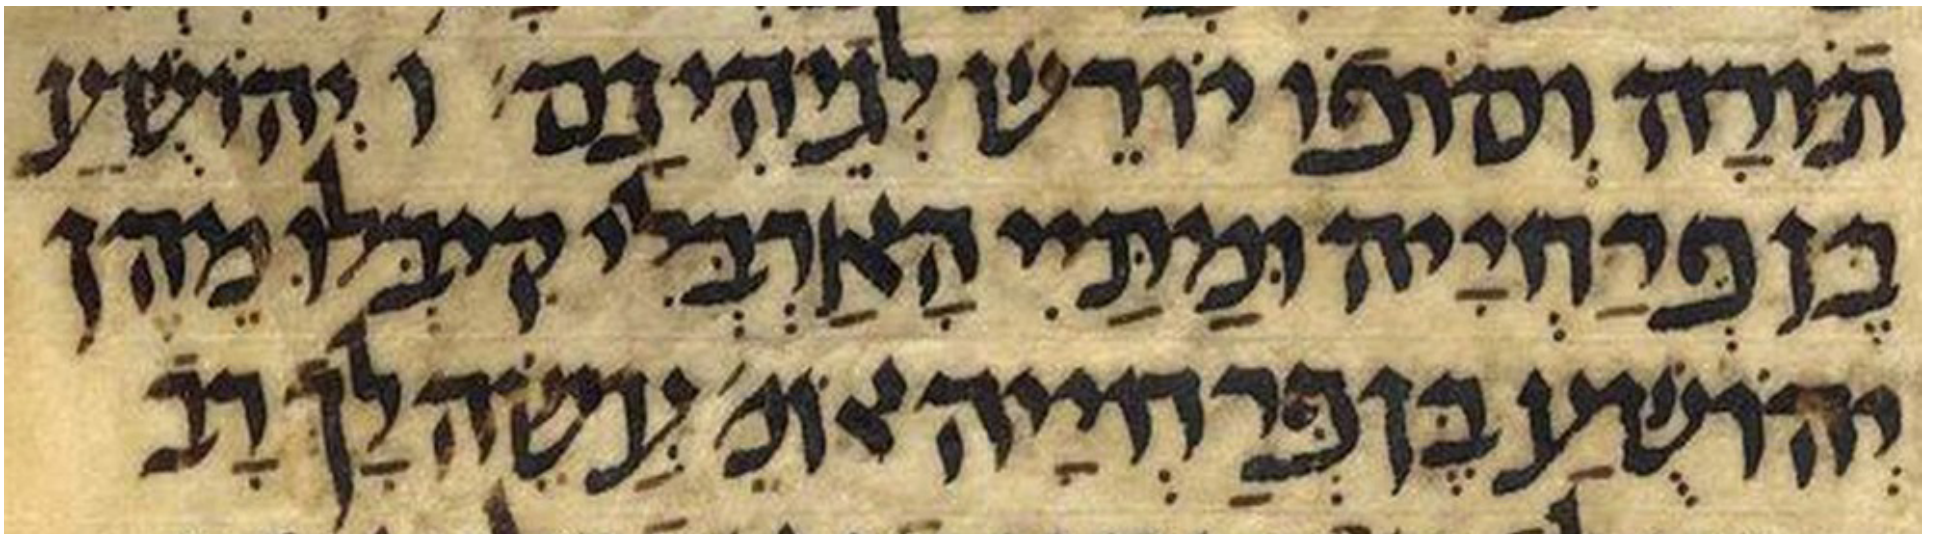 תּוֹרָה וְסוֹפוֹ יוֹרֵשׁ לְגֵיהִינַּם ו יְהוֹשֻׁעַ
בֶּן פְּרַחְיַיה וּמַתַּיִי הָאַרְבְּלִי קִיבְּלוּ מֵהֶן
יְהוֹשֻׁעַ בֶּן פְּרַחְיַיה אוֹמֵ׳ עֲשֵׂה לָךְ רָב